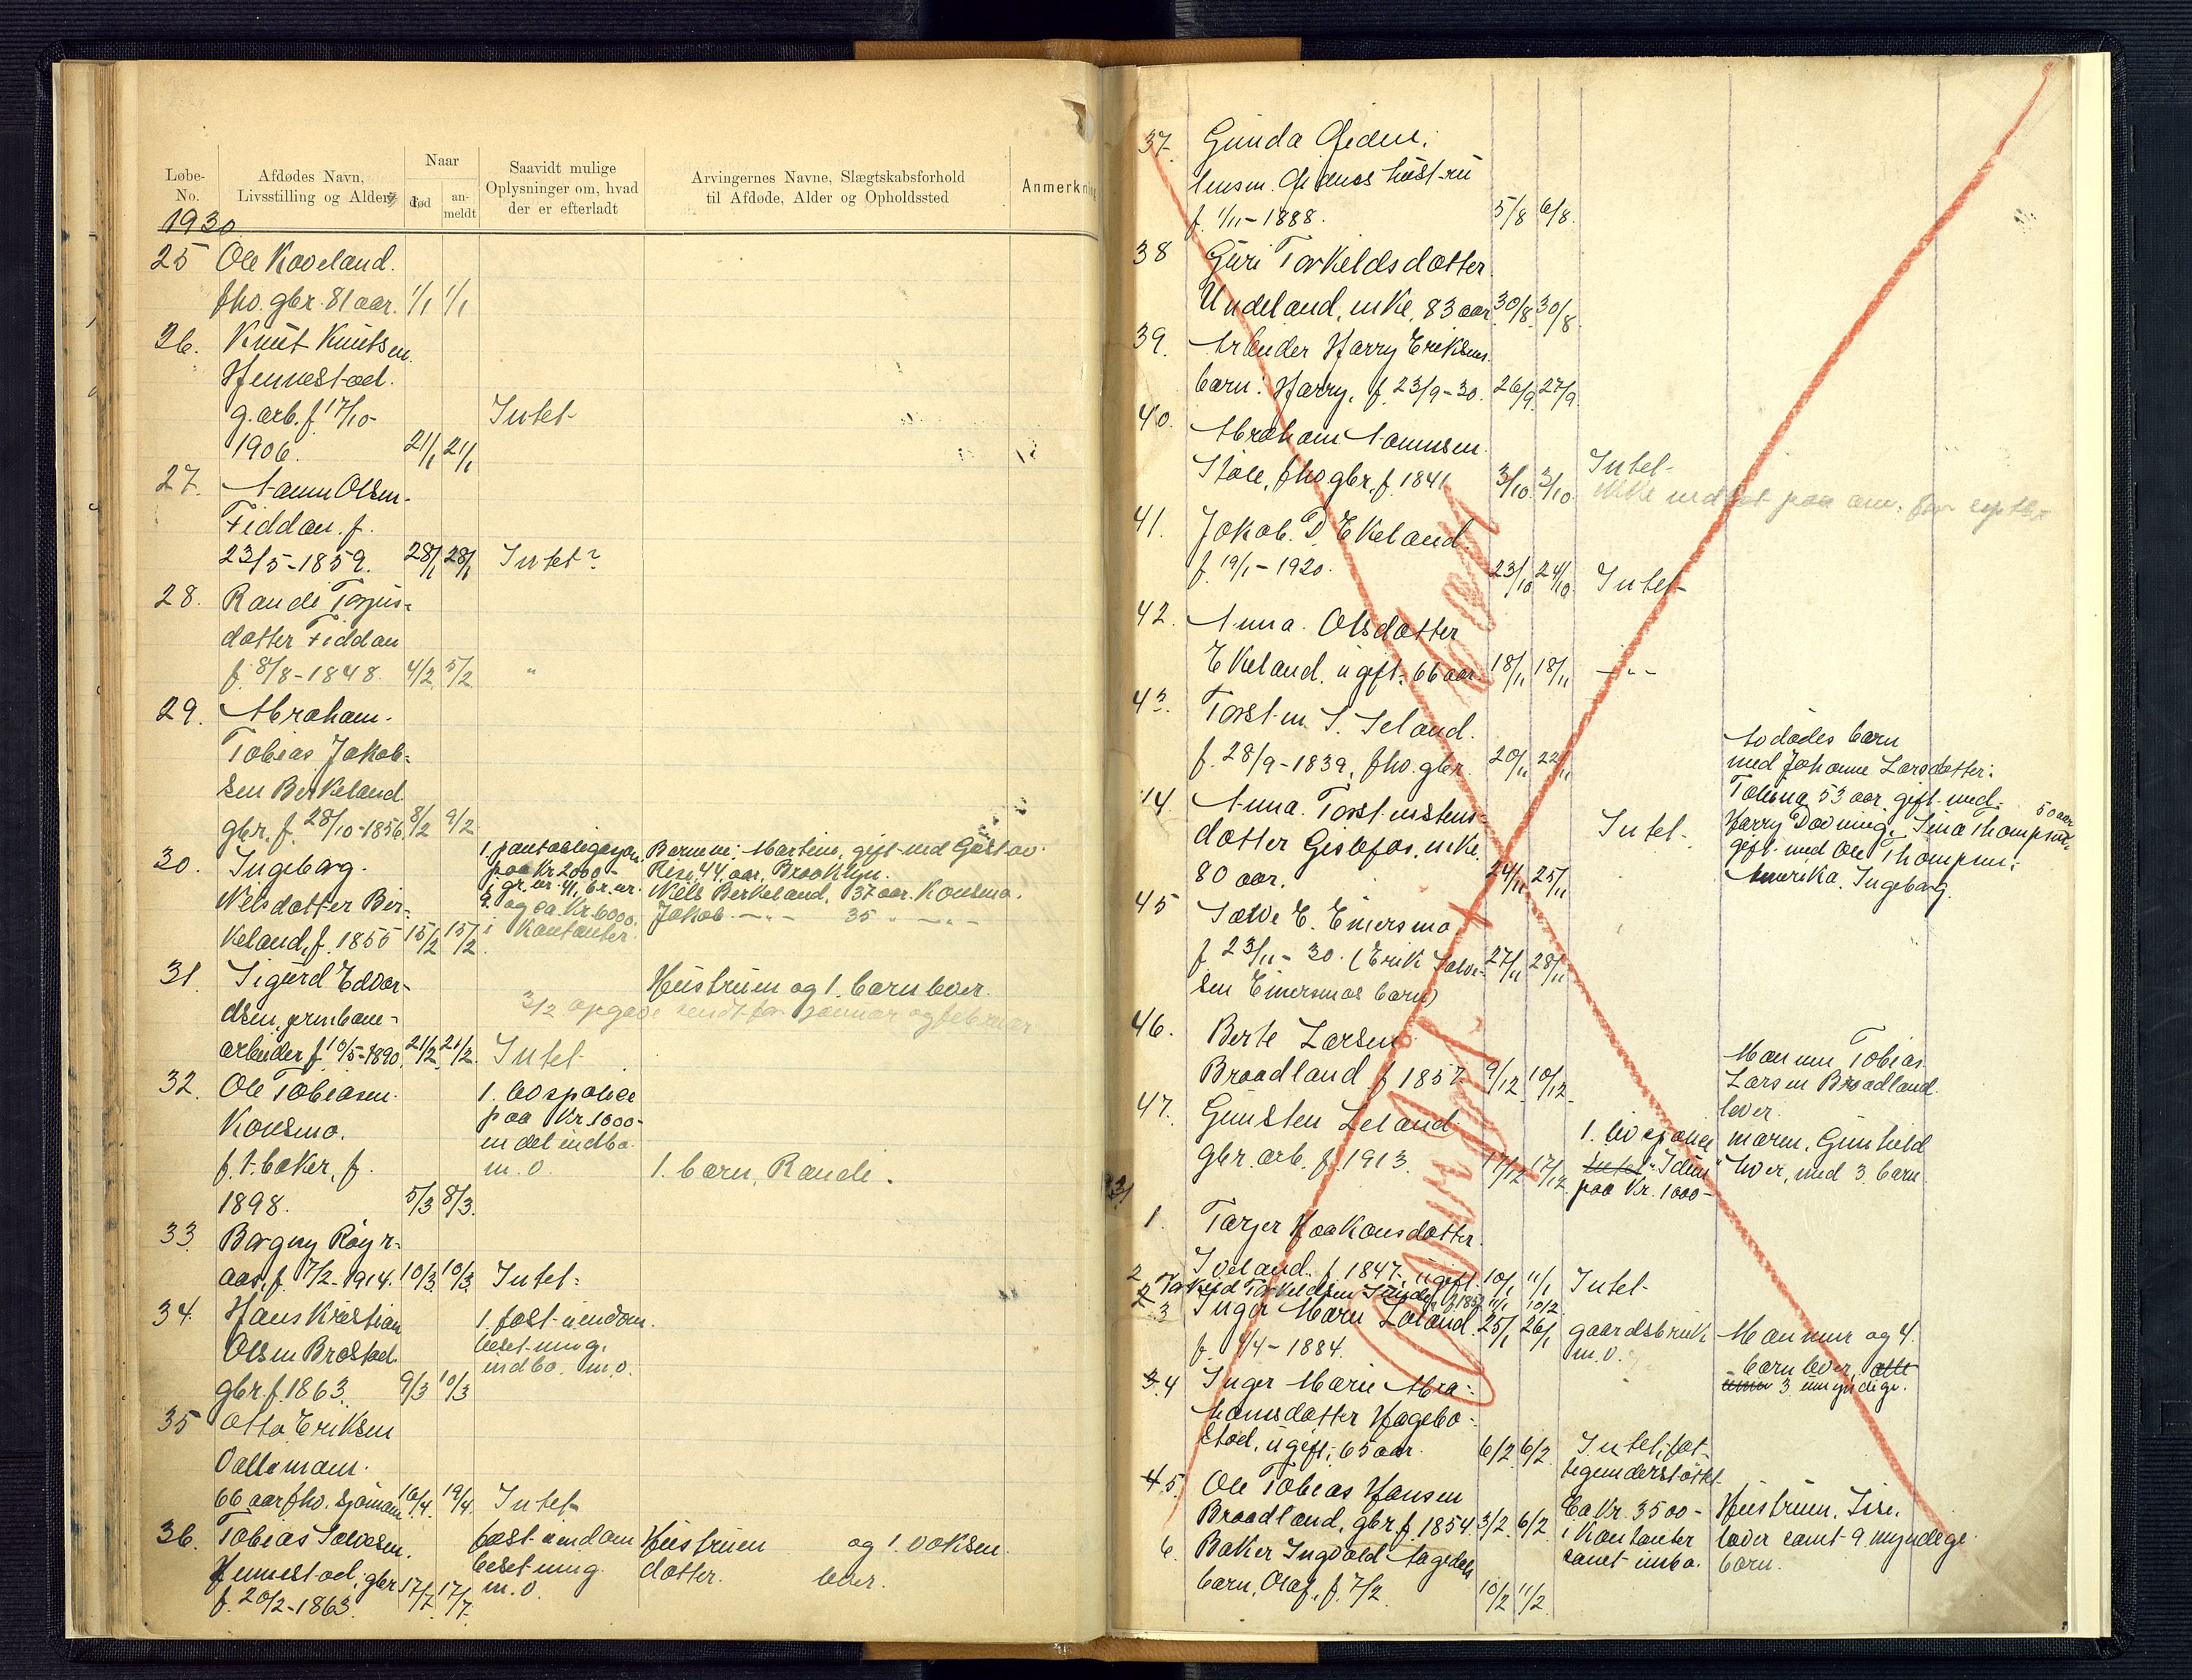 Løbe-No.
Afdødes Navn, Livsstilling og Alder
Naar
død
an-meldt
Saavidt mulige Oplysninger om, hvad der er efterladt
Arvingernes Navne, Slægtskabsforhold til Afdøde, Alder og Opholdssted
Anmerkning
1930
25 Ole Kaveland.
fho. gbr. 81 aar. 1/1 1/1
26. Knut Knutsen
Hennestad.
g.arb. f. 17/10- Intet
1906. 21/1 21/1
27. Aanen Olsen
Fiddan f.
23/5-1859. 28/1 28/1 Intet?
28. Randi Torjus-
datter Fiddan
f. 8/8-1848. 4/2 5/2 "
29. Abraham
Tobias Jakob-
sen Berkeland
gbr. f. 28/10-1856. 8/2 9/2
30. Ingeborg
Nelsdatter Ber-
keland, f. 1855 15/2 15/2
1. pantobligasjon
paa Kr 2000-
g.nr. 41, br.nr.
2. og ca. Kr. 6000.
i Kontanter.
Barnene: Martine, gift med Gustav
Rise, 44 aar, Brooklyn.
Niels Berkeland, 37 aar. Konsmo.
Jakob -"- 35 " -"-
31. Sigurd Edvar-
dsen, jernbane-
arbeider f. 10/5-1890. 21/2 21/2. Intet
Hustruen og 1. barn lever.
3/2 opgave sendt for januar og februar
32. Ole Tobiasen
Konsmo.
f.t. baker, f.
1898. 5/3 8/3.
1. livspolice
paa Kr. 1000-
en del indbo
m.v.
1. barn, Randi.
33. Borgny Røyr-
aas, f. 7/2-1914. 10/3 10/3. Intet:
34. Hans Kristian
Olsen Brastad
gbr. f. 1863. 9/3 10/3
1. fast eiendom
besetning.
indbo. m.v.
35 Otto Eriksen
Vallemoen.
66 aar fho. sjømann 16/4. 19/4. Intet
36. Tobias Salvesen
Hennestad, gbr
f. 20/2-1863. 17/7. 17/7.
fast eiendom
besetning
m.v.
Hustruen og 1. voksen
datter lever.
37. Gunda Gidne.
lensm. Gidnes hustru
f. 1/11-1888. 5/8 6/8.
38 Guri Torkeldsdatter
Undeland, enke, 83 aar 30/8. 30/8
39. Arbeider Harry Eriksens
barn: Harry, f. 23/9-30. 26/9. 27/9.
40. Abraham Aanensen
Støle, fho gbr, f. 1841 3/10. 3/10. Intet-
ikke indført paa anm. for septbr
41. Jakob. D. Ekeland
f. 19/1-1920. 23/10 24/10. Intet
42. Anna. Olsdatter
Ekeland. ugift. 66 aar. 18/11 18/11 -"-
43. Torsten S. Seland.
f. 28/9-1839, fho. gbr. 20/11 22/11
44. Anna. Torstenstens-
datter Gislefos, enke Intet-
80 aar. 24/11 25/11
Avdødes barn
med Johanne Larsdatter:
Tolena 53 aar, gift med
Harry Downing, Sina Thompson 50 aar
gift med Ole Thompson,
Amerika. Ingeborg
45 Salve E. Eiersmo,
f 23/11-30. (Erik Salve- 27/11 28/11
sen Eiersmos barn)
46. Berte Larsen
Braadland f 1857. 9/12. 10/12.
Mannen Tobias
Larsen Braadland
lever.
47. Gunsten Leland
gbr. arb. f. 1913. 17/12 17/12.
1. livspolice
Intet "Idun"
paa Kr. 1000-
moren, Gunhild
lever, med 3 barn
31
1. Torjer Haakonsdatter
Iveland. f 1847, ugift 10/1 11/1 Intet-
2 Torkeld Torkeldsen 11/1 10/2
3 Inger Marie Laland 25/1 26/1
f. 4/4-1884.
gaardsbruk
m.v.
Mannen og 4
barn lever, alle
3 umyndige.
4 Inger Marie Abra-
hamsdatter Hagebø-
stad, ugift, 65 aar. 6/2 6/2
Intet, fat-
tigunderstøttet
5. Ole Tobias Hansen
Braadland, gbr f 1854 3/2. 6/2
Ca Kr. 3500-
i Kontanter
samt innbo.
Hustruen, Sire,
lever samt 9 myndige
barn.
6. Baker Ingvald
barn, Olaf, f. 7/2. 10/2 11/2.